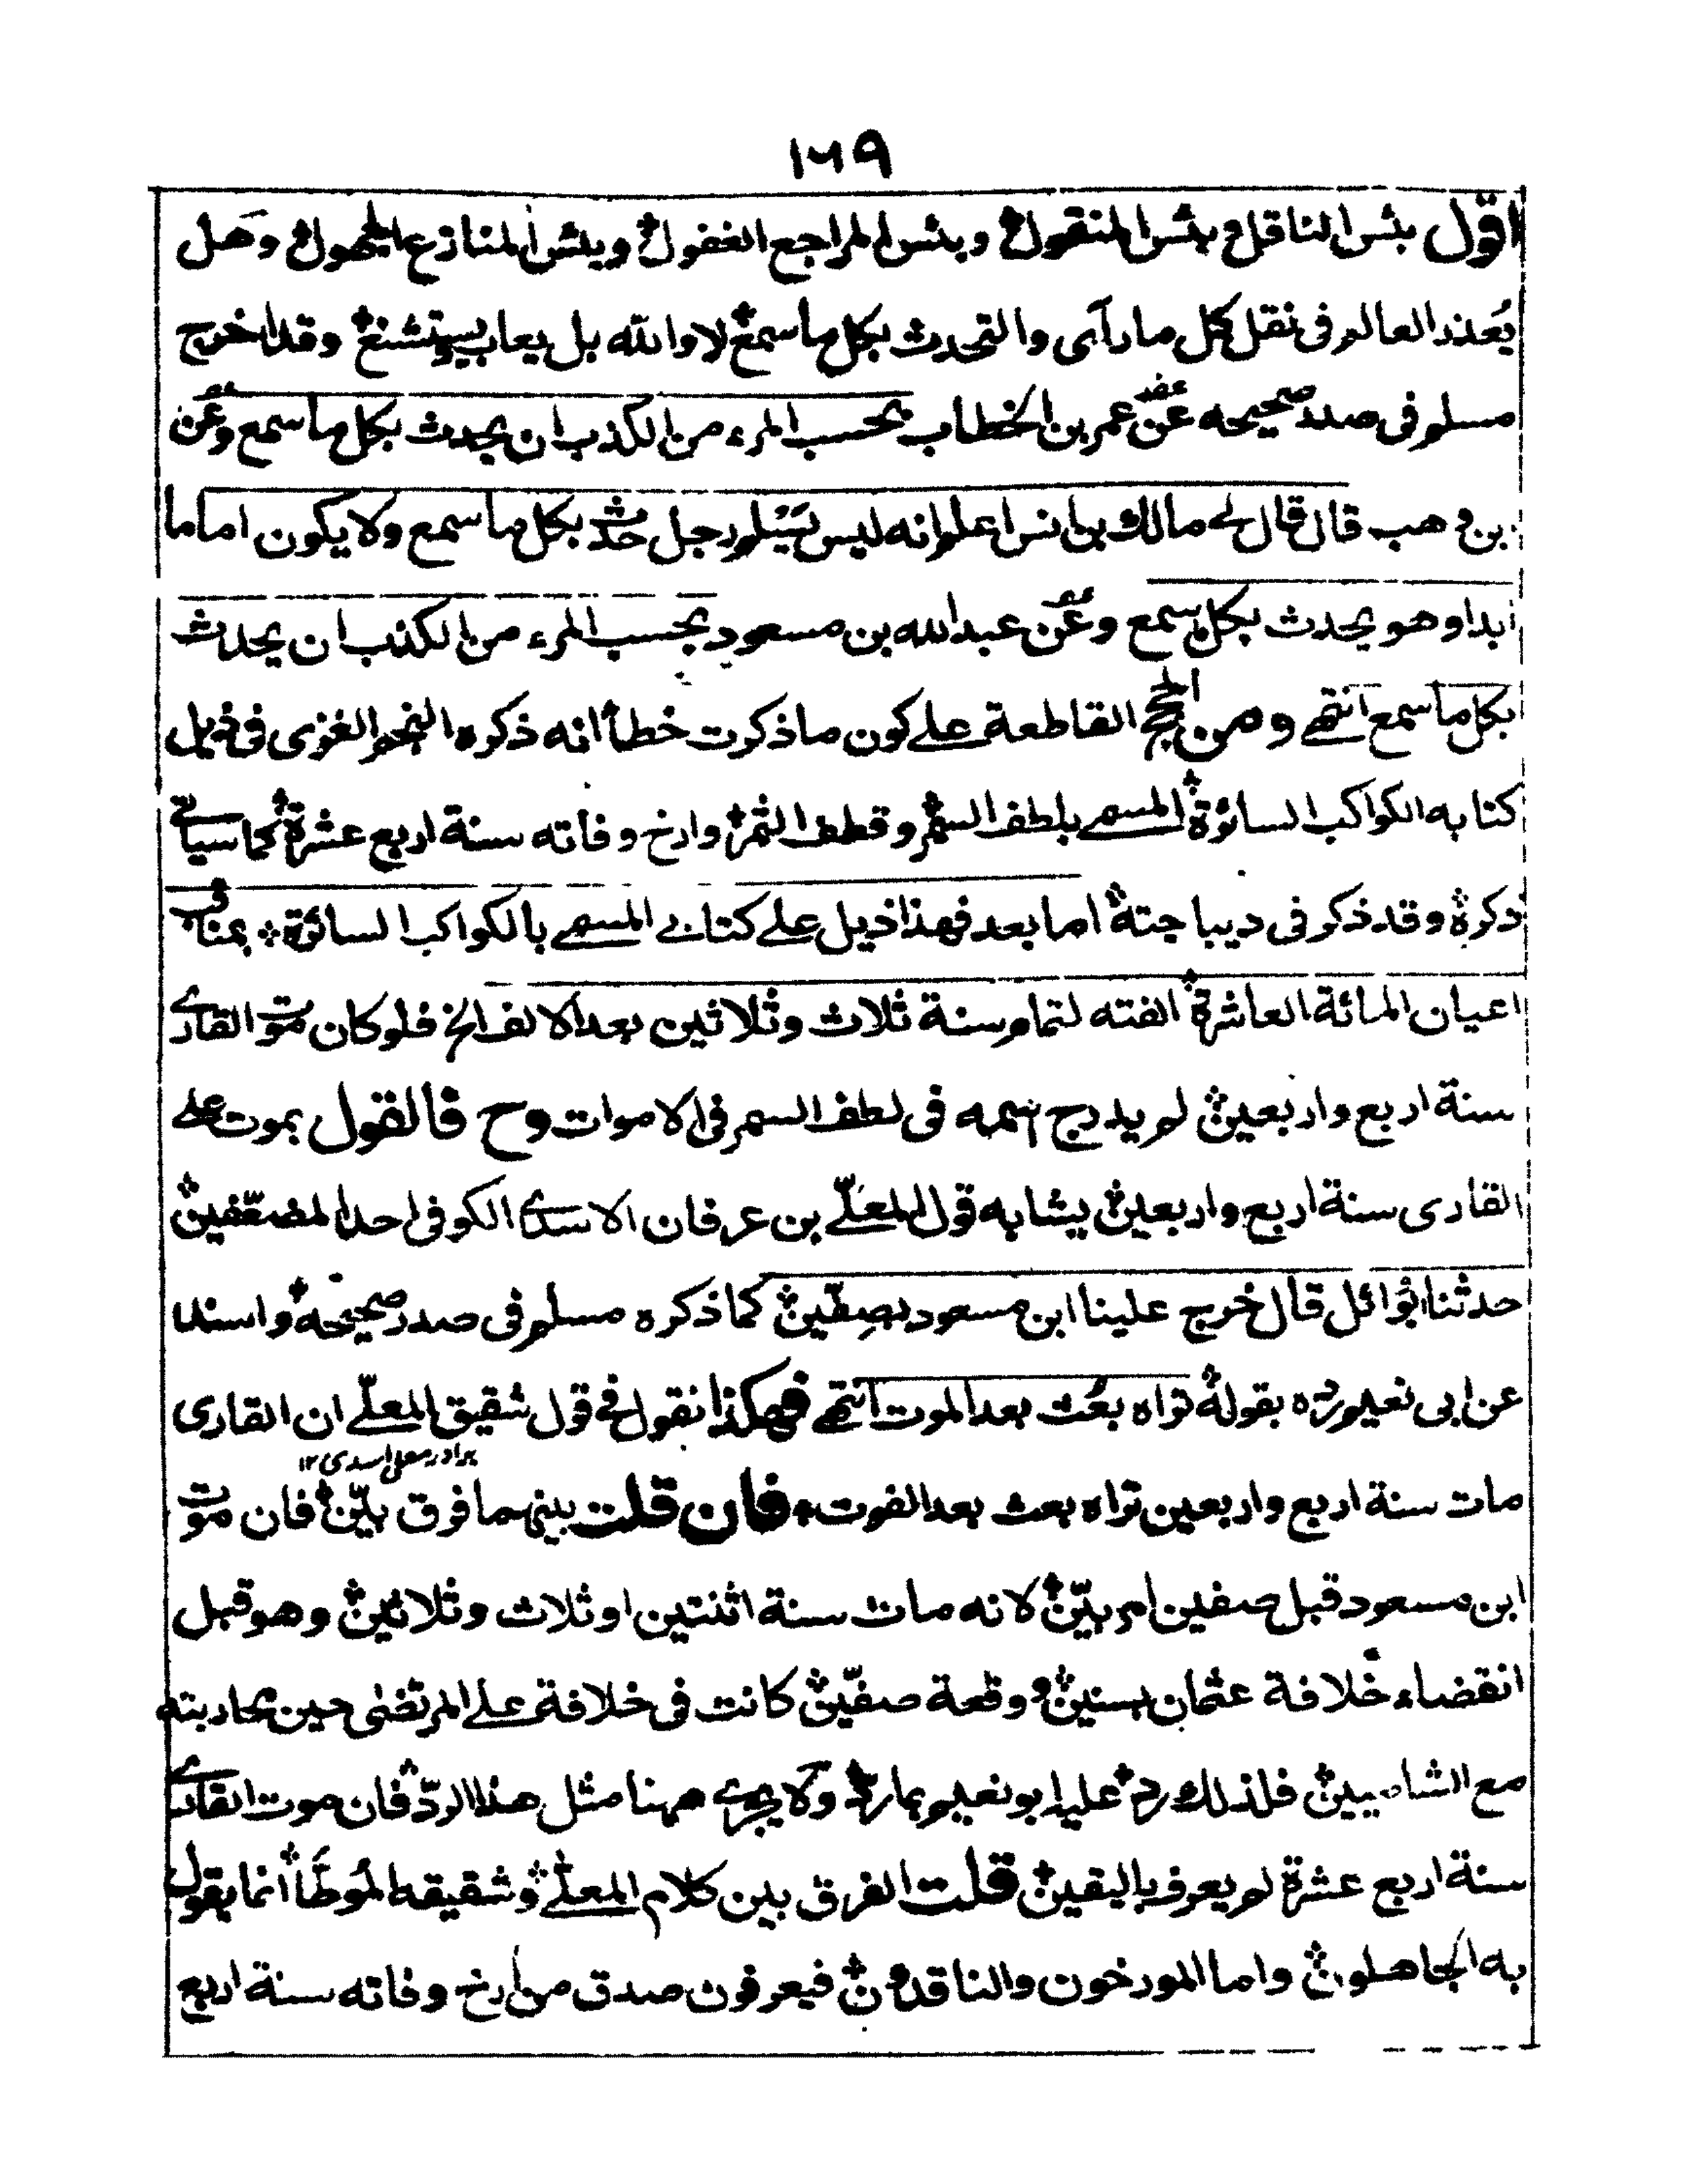 ١٦٩
اقول بئس الناقل وبئس المنقول وبئس المراجع الغفول وبئس المنازع الجهول وهل
يُعذر العالم فى نقل كل ما رآى والتحدث بكل ما سمع لا والله بل يعاب ويستشنع وقد اخرج
مسلم فى صدر صحيحه عن عمر بن الخطاب بحسب المرء من الكذب ان يحدث بكل ما سمع وعن
بن وهب قال قال لى مالك بن انس اعلم انه ليس يَسْلم رجل حدّث بكل ما سمع ولا يكون اماما
ابدا وهو يحدث بكل ما سمع وعن عبد الله بن مسعود بحسب المرء من الكذب ان يحدث
بكل ما سمع انتهى ومن الحجج القاطعة على كون ما ذكرت خطأ انه ذكره النجم الغزى فى ذيل
كتابه الكواكب السائرة المسمى بلطف السمر وقطف الثمر وارخ وفاته سنة اربع عشرة كما سياتى
ذكره وقد ذكر فى ديباجته اما بعد فهذا ذيل على كتابى المسمى بالكواكب السائرة بمناقب
اعيان المائة العاشرة الفته لتمام سنة ثلاث وثلاثين بعد الالف الخ فلو كان موت القارى
سنة اربع واربعين لم يدرج اسمه فى لطف السمر فى الاموات وح فالقول بموت على
القارى سنة اربع واربعين يشابه قول المعلّى بن عرفان الاسدى الكوفى احد المضعّفين
حدثنا ابو وائل قال خرج علينا ابن مسعود بصفّين كما ذكره مسلم فى صدر صحيحه واسند
عن ابى نعيم رده بقوله تراه بعُث بعد الموت انتهى فهكذا نقول فى قول شقيق المعلّى ان القارى
برادر معلى اسدى ١٢
مات سنة اربع واربعين تراه بعث بعد الفوت فان قلت بينهما فرق بيّن فان موت
ابن مسعود قبل صفين امر بيّن لانه مات سنة اثنتين او ثلاث وثلاثين وهو قبل
انقضاء خلافة عثمان بسنين ووقعة صفّين كانت فى خلافة على المرتضى حين محاربته
مع الشاميين فلذلك ردّ عليه ابو نعيم بما ردّ ولا يجرى ههنا مثل هذا الردّ فان موت القارى
سنة اربع عشرة لم يعرف باليقين قلت الفرق بين كلام المعلّى وشقيقه الموطّأ انما يقول
به الجاهلون واما المورخون والناقدون فيعرفون صدق من ارخ وفاته سنة اربع